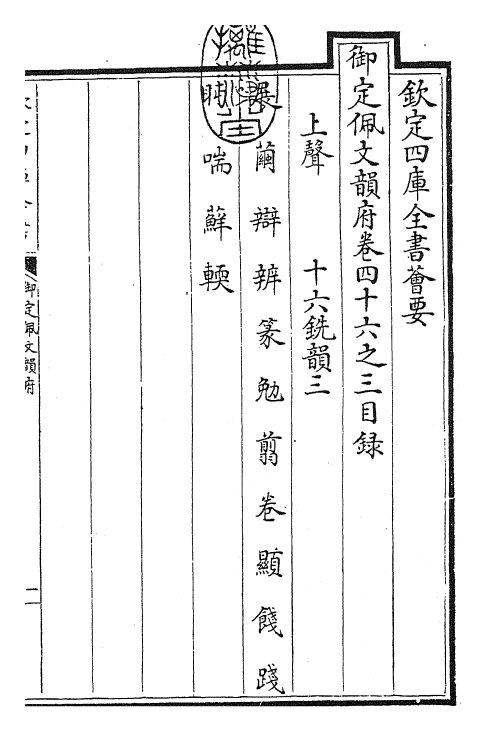 欽定四庫全書薈要
御定佩文韻府卷四十六之三目録
上聲　十六銑韻三
繭辯辨篆勉翦卷顯餞踐
喘蘚輭
御定佩文韻府